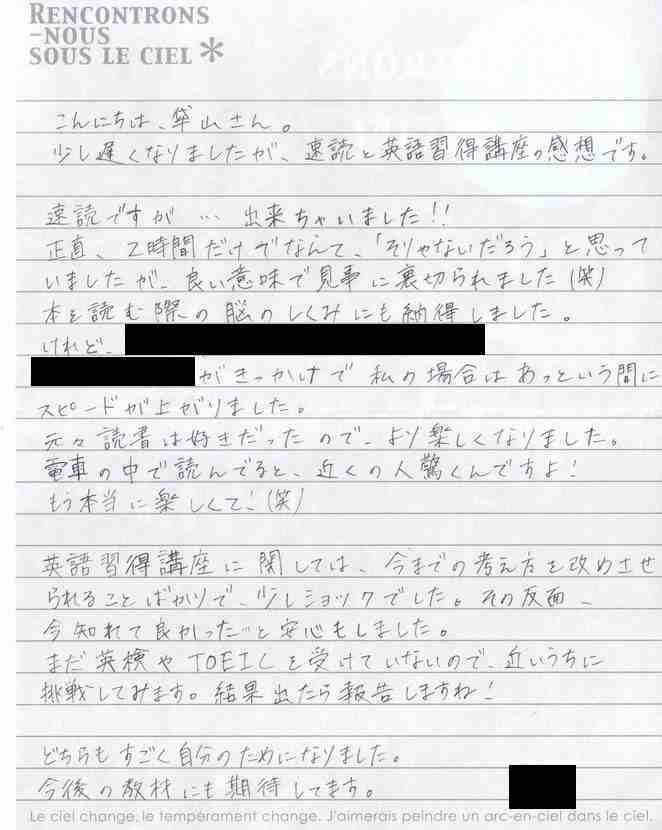 RENCONTRONS
-NOUS
SOUS LE CIEL*
こんにちは、袋山さん。
少し遅くなりましたが、速読と英語習得講座の感想です。
速読ですが…出来ちゃいました!!
正直、2時間だけでなんて、「そりゃないだろう」と思って
いましたが、良い意味で見事に裏切られました(笑)
本を読む際の脳のしくみにも納得しました。
けれど、
がきっかけで私の場合はあっという間に
スピードが上がりました。
元々読書は好きだったので、より楽しくなりました。
電車の中で読んでると、近くの人驚くんですよ!
もう本当に楽しくて!(笑)
英語習得講座に関しては、今までの考え方を改めさせ
られることばかりで、少しショックでした。その反面、
今知れて良かった…と安心もしました。
まだ英検やTOEICを受けていないので、近いうちに
挑戦してみます。結果出たら報告しますね!
どちらもすごく自分のためになりました。
今後の教材にも期待してます。
Le ciel change, le tempérament change. J'aimerais peindre un arc-en-ciel dans le ciel.